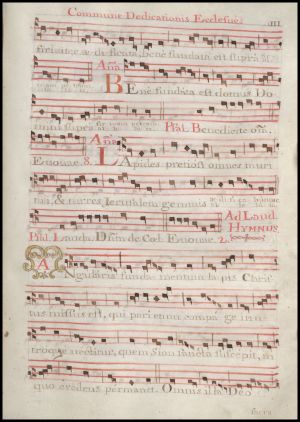 Commune Dedicationis Ecclesiæ. III
ædificata, benè fundata est suprà
Aña.
BEne fundata est domus Do
mini supra Psal. Benedicite om̃.
Aña.
Evouae. 8. LApides pretiosi omnes muri
tui, & turres Jerusalem gemmis
Ad Laud.
HYMNUS.
Psal. Lauda. Dñm de Cœl. Evouae. 2.
ANgularis fundamentum lapis Chris
tus missus est, qui parietum compage in u
troque nectitur, quem Sion sancta suscepit, in
quo credens permanet. Omnis illa Deo
sacra